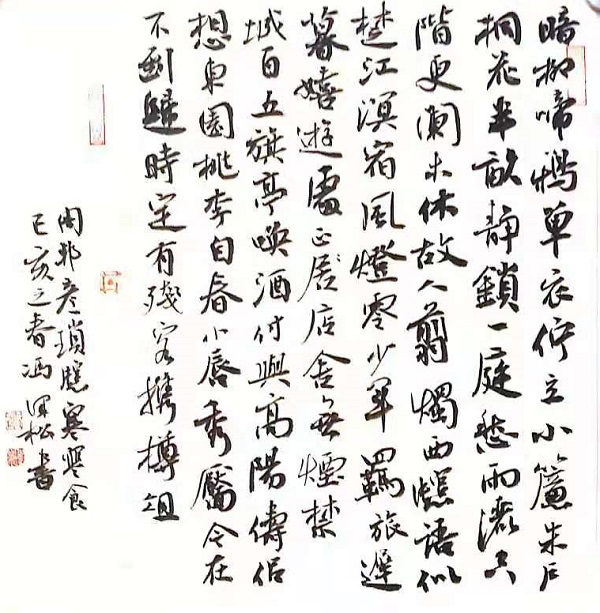 暗柳啼鴉單衣佇立小簾朱戶
桐花半畝靜鎖一庭愁雨灑空
階更闌未休故人翦燭西牕語似
楚江溟宿風燈零少年羈旅遲
暮嬉遊處正居店舍無煙禁
城百五旗亭喚酒付與高陽儔侶
想東園桃李自春小唇秀靨今在
不到歸時定有殘客携樽俎
周邦彥瑣牕寒寒食
己亥之春馮松書